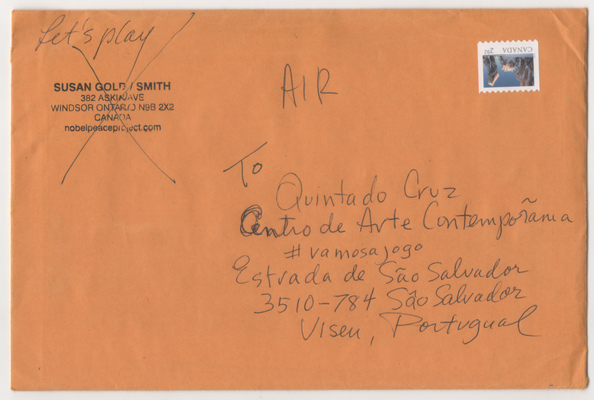 Let's play
SUSAN GOLD / SMITH
382 ASKIN AVE
WINDSOR ONTARIO N9B 2X2
CANADA
nobelpeaceproject.com
CANADA
AIR
To
Quintado Cruz
Centro de Arte Contemporãnia
#vamosajogo
Estrada de São Salvador
3510-784 São Salvador
Viseu, Portugual